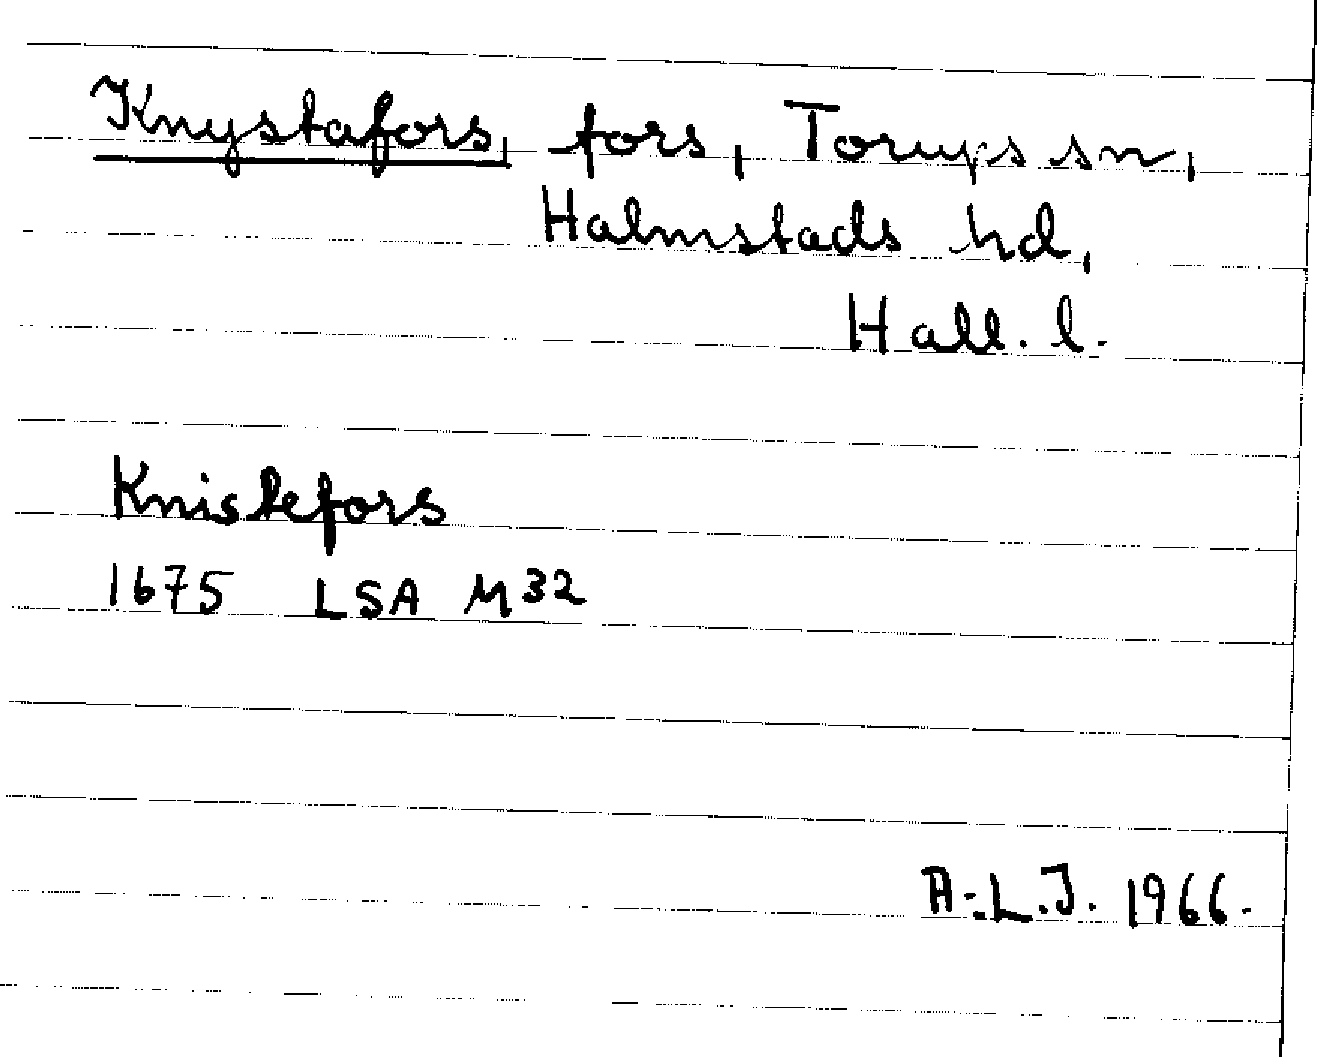 Knystafors, fors, Torups sn,
Halmstads hd,
Hall. l.
Knistefors
1675 LSA M32
A-L.J. 1966.